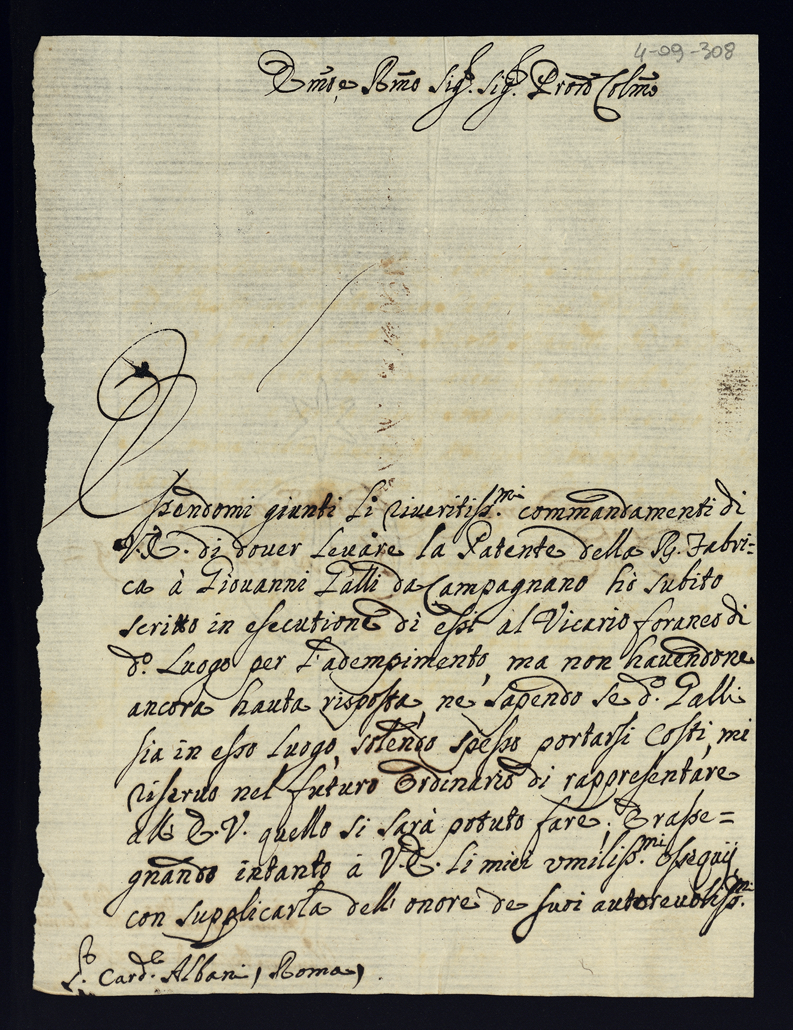 4-09-308
Em͞o e Rm͞o Sig.r Sig.r Pron͞e Colm͞o
Essendomi giunti li riveritiss.mi commandamenti di
V.E. di dover levare la Patente della R. Fabri=
ca à Giovanni Galli da Campagnano hò subito
scritto in esecutione di essi al Vicario foraneo di
d.o Luogo per l'adempimento, ma non havendone
ancora hauta risposta, ne sapendo se d.o Galli
sia in esso luogo, solendo spesso portarsi costì, mi
riservo nel futuro ordinario di rappresentare
all'E.V. quello si sarà potuto fare; E rasse=
gnando intanto à V.E. li miei umiliss.mi ossequij
con supplicarla dell'onore de suoi autorevoliss.mi
S.r Card.le Albani, Roma,